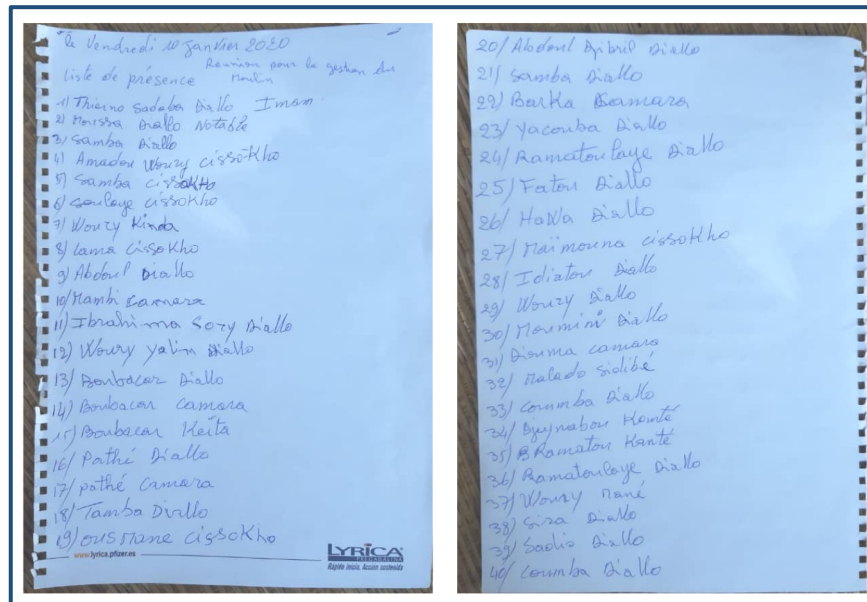 le Vendredi 10 janvier 2020
Réunion pour la gestion du
Liste de présence Moulin
1) Thierno Sadaba Diallo Imam
2) Moussa Diallo Notable
3) Samba Diallo
4) Amadou Woury Cissokho
5) Samba Cissokho
6) Souleye Cissokho
7) Woury Kinda
8) Lama Cissokho
9) Abdoul Diallo
10) Mambi Camara
11) Ibrahima Sory Diallo
12) Woury Yalin Diallo
13) Boubacar Diallo
14) Boubacar Camara
15) Boubacar Keita
16) Pathé Diallo
17) Pathé Camara
18) Tamba Diallo
19) Ousmane Cissokho
www.lyrica.pfizer.es
LYRICA
PREGABALINA
Rapido inicio. Acción sostenida
20/ Abdoul Djibril Diallo
21/ Samba Diallo
22/ Barka Camara
23/ Yacouba Diallo
24/ Ramatoulaye Diallo
25/ Fatou Diallo
26/ Hawa Diallo
27/ Maïmouna Cissokho
28/ Idiatou Diallo
29/ Woury Diallo
30/ Moumini Diallo
31/ Camara
32/ Malado Sidibé
33/ Coumba Diallo
34/ Djynabou Konté
35/ Ramatou Kanté
36/ Ramatoulaye Diallo
37/ Woury Mané
38/ Sira Diallo
39/ Sadio Diallo
40/ Coumba Diallo